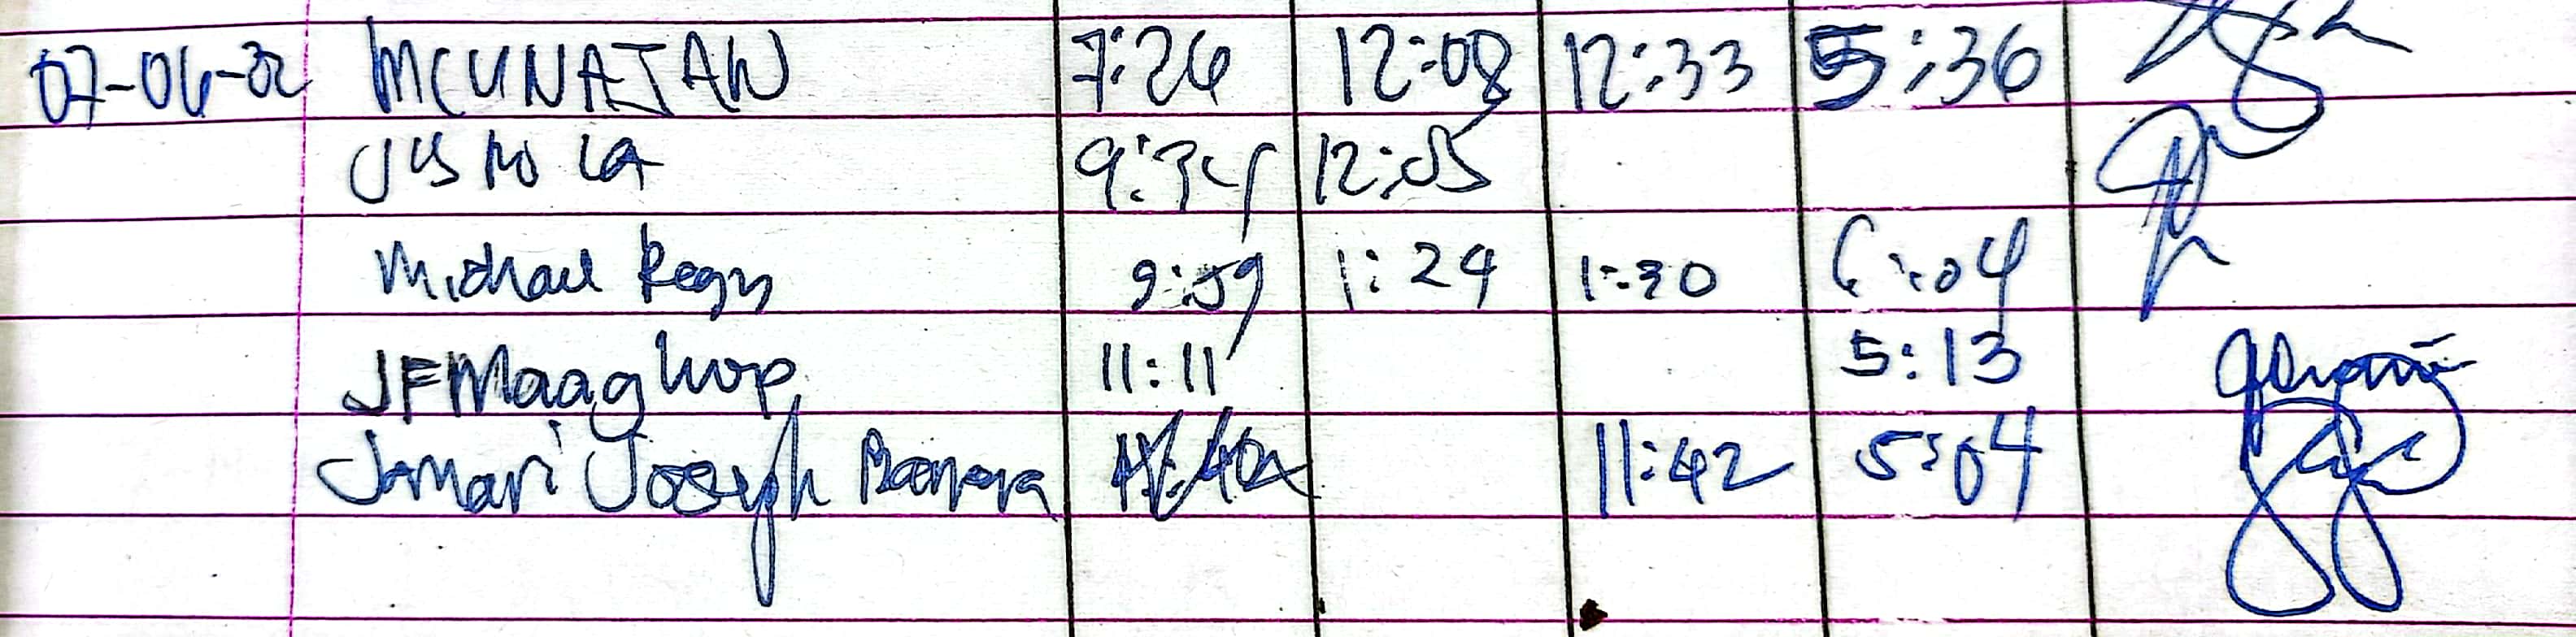 07-06-22 MCUNATAN 7:26 12:08 12:33 5:36
9:34 12:05
Michael 9:59 1:24 1:30 6:04
JFMaaghop 11:11 5:13
Jamari Joseph 11:42 5:04